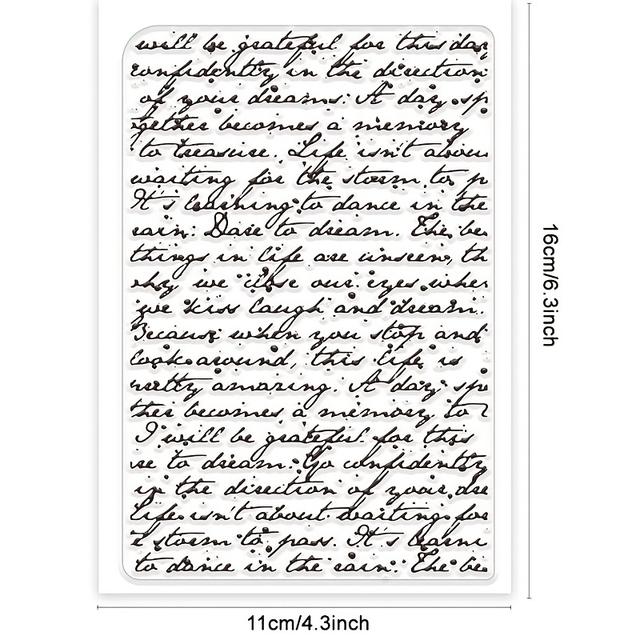 will be grateful for this day
confidently in the direction
of your dreams. A day sp
gether becomes a memory
to treasure. Life isn't about
waiting for the storm to p
It's learning to dance in the
rain. Dare to dream. The be
things in life are unseen, th
why we close our eyes when
we kiss laugh and dream.
Because when you stop and
look around, this life is
retty amazing. A day spe
ther becomes a memory to
I will be grateful for this
re to dream. Go confidently
in the direction of your dre
Life isn't about waiting for
e storm to pass. It's learni
to dance in the rain. The be
16cm/6.3inch
11cm/4.3inch